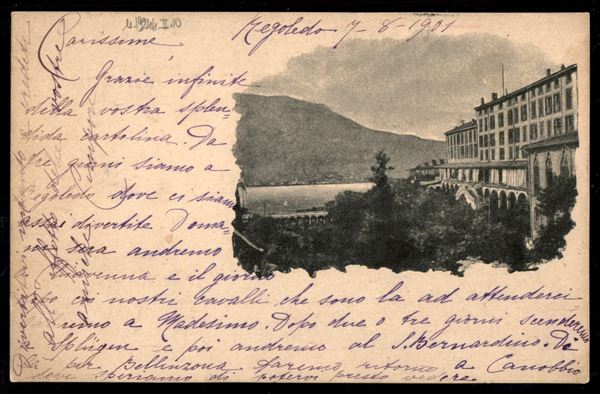 Regoledo 7-8-1901
Carissime
Grazie infinite
della vostra splen=
dida cartolina. Da
tre giorni siamo a
Regoledo dove ci siamo
assai divertite Doma=
ni sera andremo
a Chiavenna e il giorno
dopo coi nostri cavalli che sono là ad attenderci
andremo a Madesimo. Dopo due o tre giorni scenderemo
a Splügen e poi andremo al S. Bernardino. Da
lì per Bellinzona faremo ritorno a Canobbio
dove speriamo di potervi presto vedere.
credete
all'affetto delle
vostre
amiche